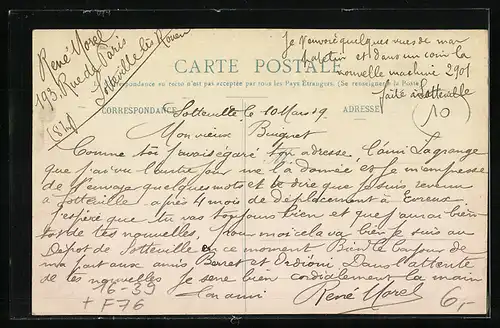 René Morel
193, Rue de Paris
Sotteville lès Rouen
Je t'envoie quelques vues de mon
patelin et dans un coin la
nouvelle machine 2901
faite à Sotteville
CARTE POSTALE
La Correspondance au recto n'est pas acceptée par tous les Pays Étrangers. (Se renseigner à la Poste)
CORRESPONDANCE
ADRESSE
10
Sotteville le 10 Mars 19
Mon vieux Buignet
Comme toi j'avais égaré ton adresse, l'ami Lagrange
que j'ai vu l'autre jour me l'a donnée et je m'empresse
de t'envoyer quelques mots et te dire que je suis revenu
à Sotteville après 4 mois de déplacement à Evreux
J'espère que tu vas toujours bien et que j'aurai bien-
tôt de tes nouvelles, pour moi cela va bien je suis au
Dépôt de Sotteville en ce moment Bien le bonjour de
ma part aux amis et Dans l'attente
de tes nouvelles je serre bien cordialement la main
Ton ami René Morel
16-39
+ F76
6,-